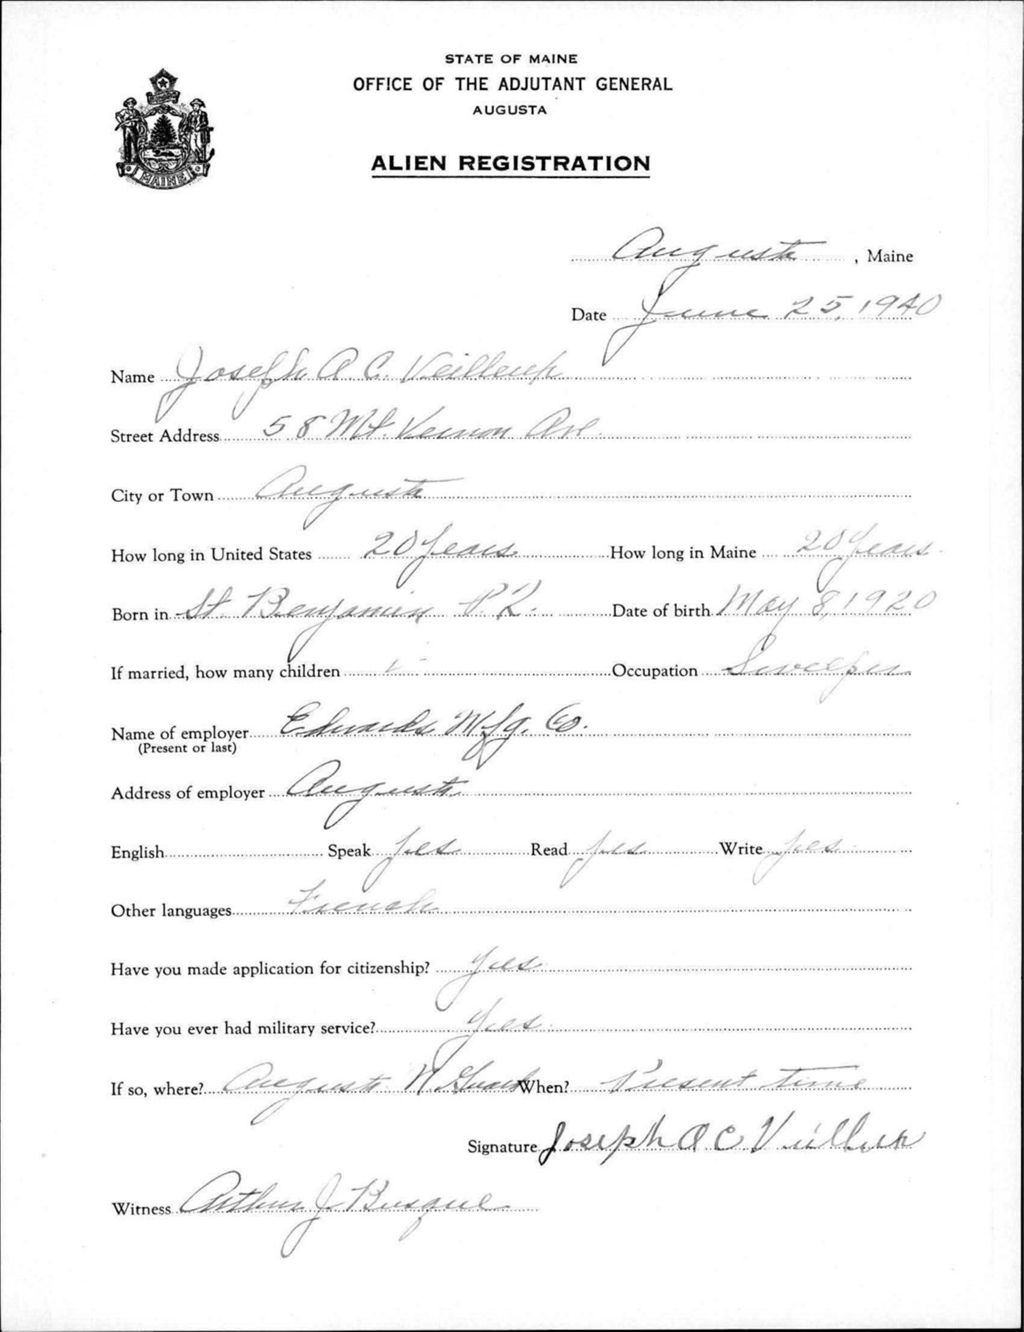 STATE OF MAINE
OFFICE OF THE ADJUTANT GENERAL
AUGUSTA
ALIEN REGISTRATION
Augusta, Maine
Date June 25, 1940
Name Joseph A C. Veilleux
Street Address 58 Mt. Vernon Ave.
City or Town Augusta
How long in United States 20 Years How long in Maine 20 Years
Born in St. Benjamin P.Q. Date of birth May 8, 1920
If married, how many children Occupation Sweeper
Name of employer Edwards Mfg. Co.
(Present or last)
Address of employer Augusta
English Speak yes Read yes Write yes
Other languages French
Have you made application for citizenship? Yes
Have you ever had military service? Yes
If so, where? Augusta N Guard When? Present time
Signature Joseph A C Veilleux
Witness Arthur J. Busque
MAINE